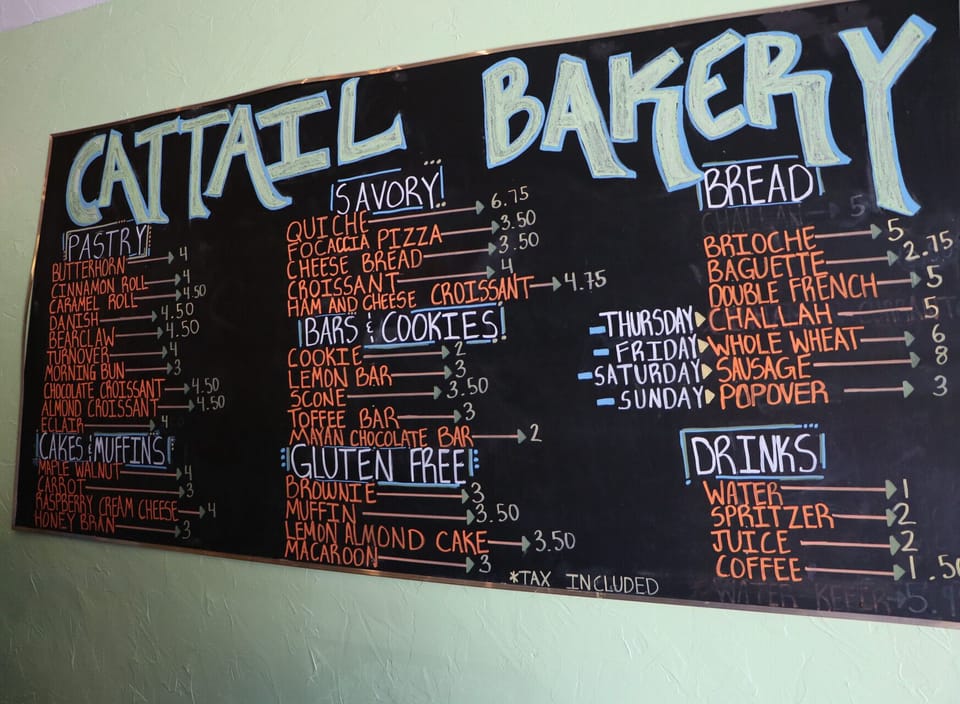 CATTAIL BAKERY
PASTRY
BUTTERHORN 4
CINNAMON ROLL 4
CARAMEL ROLL 4.50
DANISH 4.50
BEARCLAW 4.50
TURNOVER 4
MORNING BUN 3
CHOCOLATE CROISSANT 4.50
ALMOND CROISSANT 4.50
ECLAIR 4
CAKES & MUFFINS
MAPLE WALNUT 4
CARROT 3
RASPBERRY CREAM CHEESE 4
HONEY BRAN 3
SAVORY
QUICHE 6.75
FOCACCIA PIZZA 3.50
CHEESE BREAD 3.50
CROISSANT 4
HAM AND CHEESE CROISSANT 4.75
BARS & COOKIES
COOKIE 2
LEMON BAR 3
SCONE 3.50
TOFFEE BAR 3
MAYAN CHOCOLATE BAR 2
GLUTEN FREE
BROWNIE 3
MUFFIN 3.50
LEMON ALMOND CAKE 3.50
MACAROON 3
*TAX INCLUDED
BREAD
CHALLAH 5
BRIOCHE 5
BAGUETTE 2.75
DOUBLE FRENCH 5
THURSDAY CHALLAH 5
FRIDAY WHOLE WHEAT 6
SATURDAY SAUSAGE 8
SUNDAY POPOVER 3
DRINKS
WATER 1
SPRITZER 2
JUICE 2
COFFEE 1.50